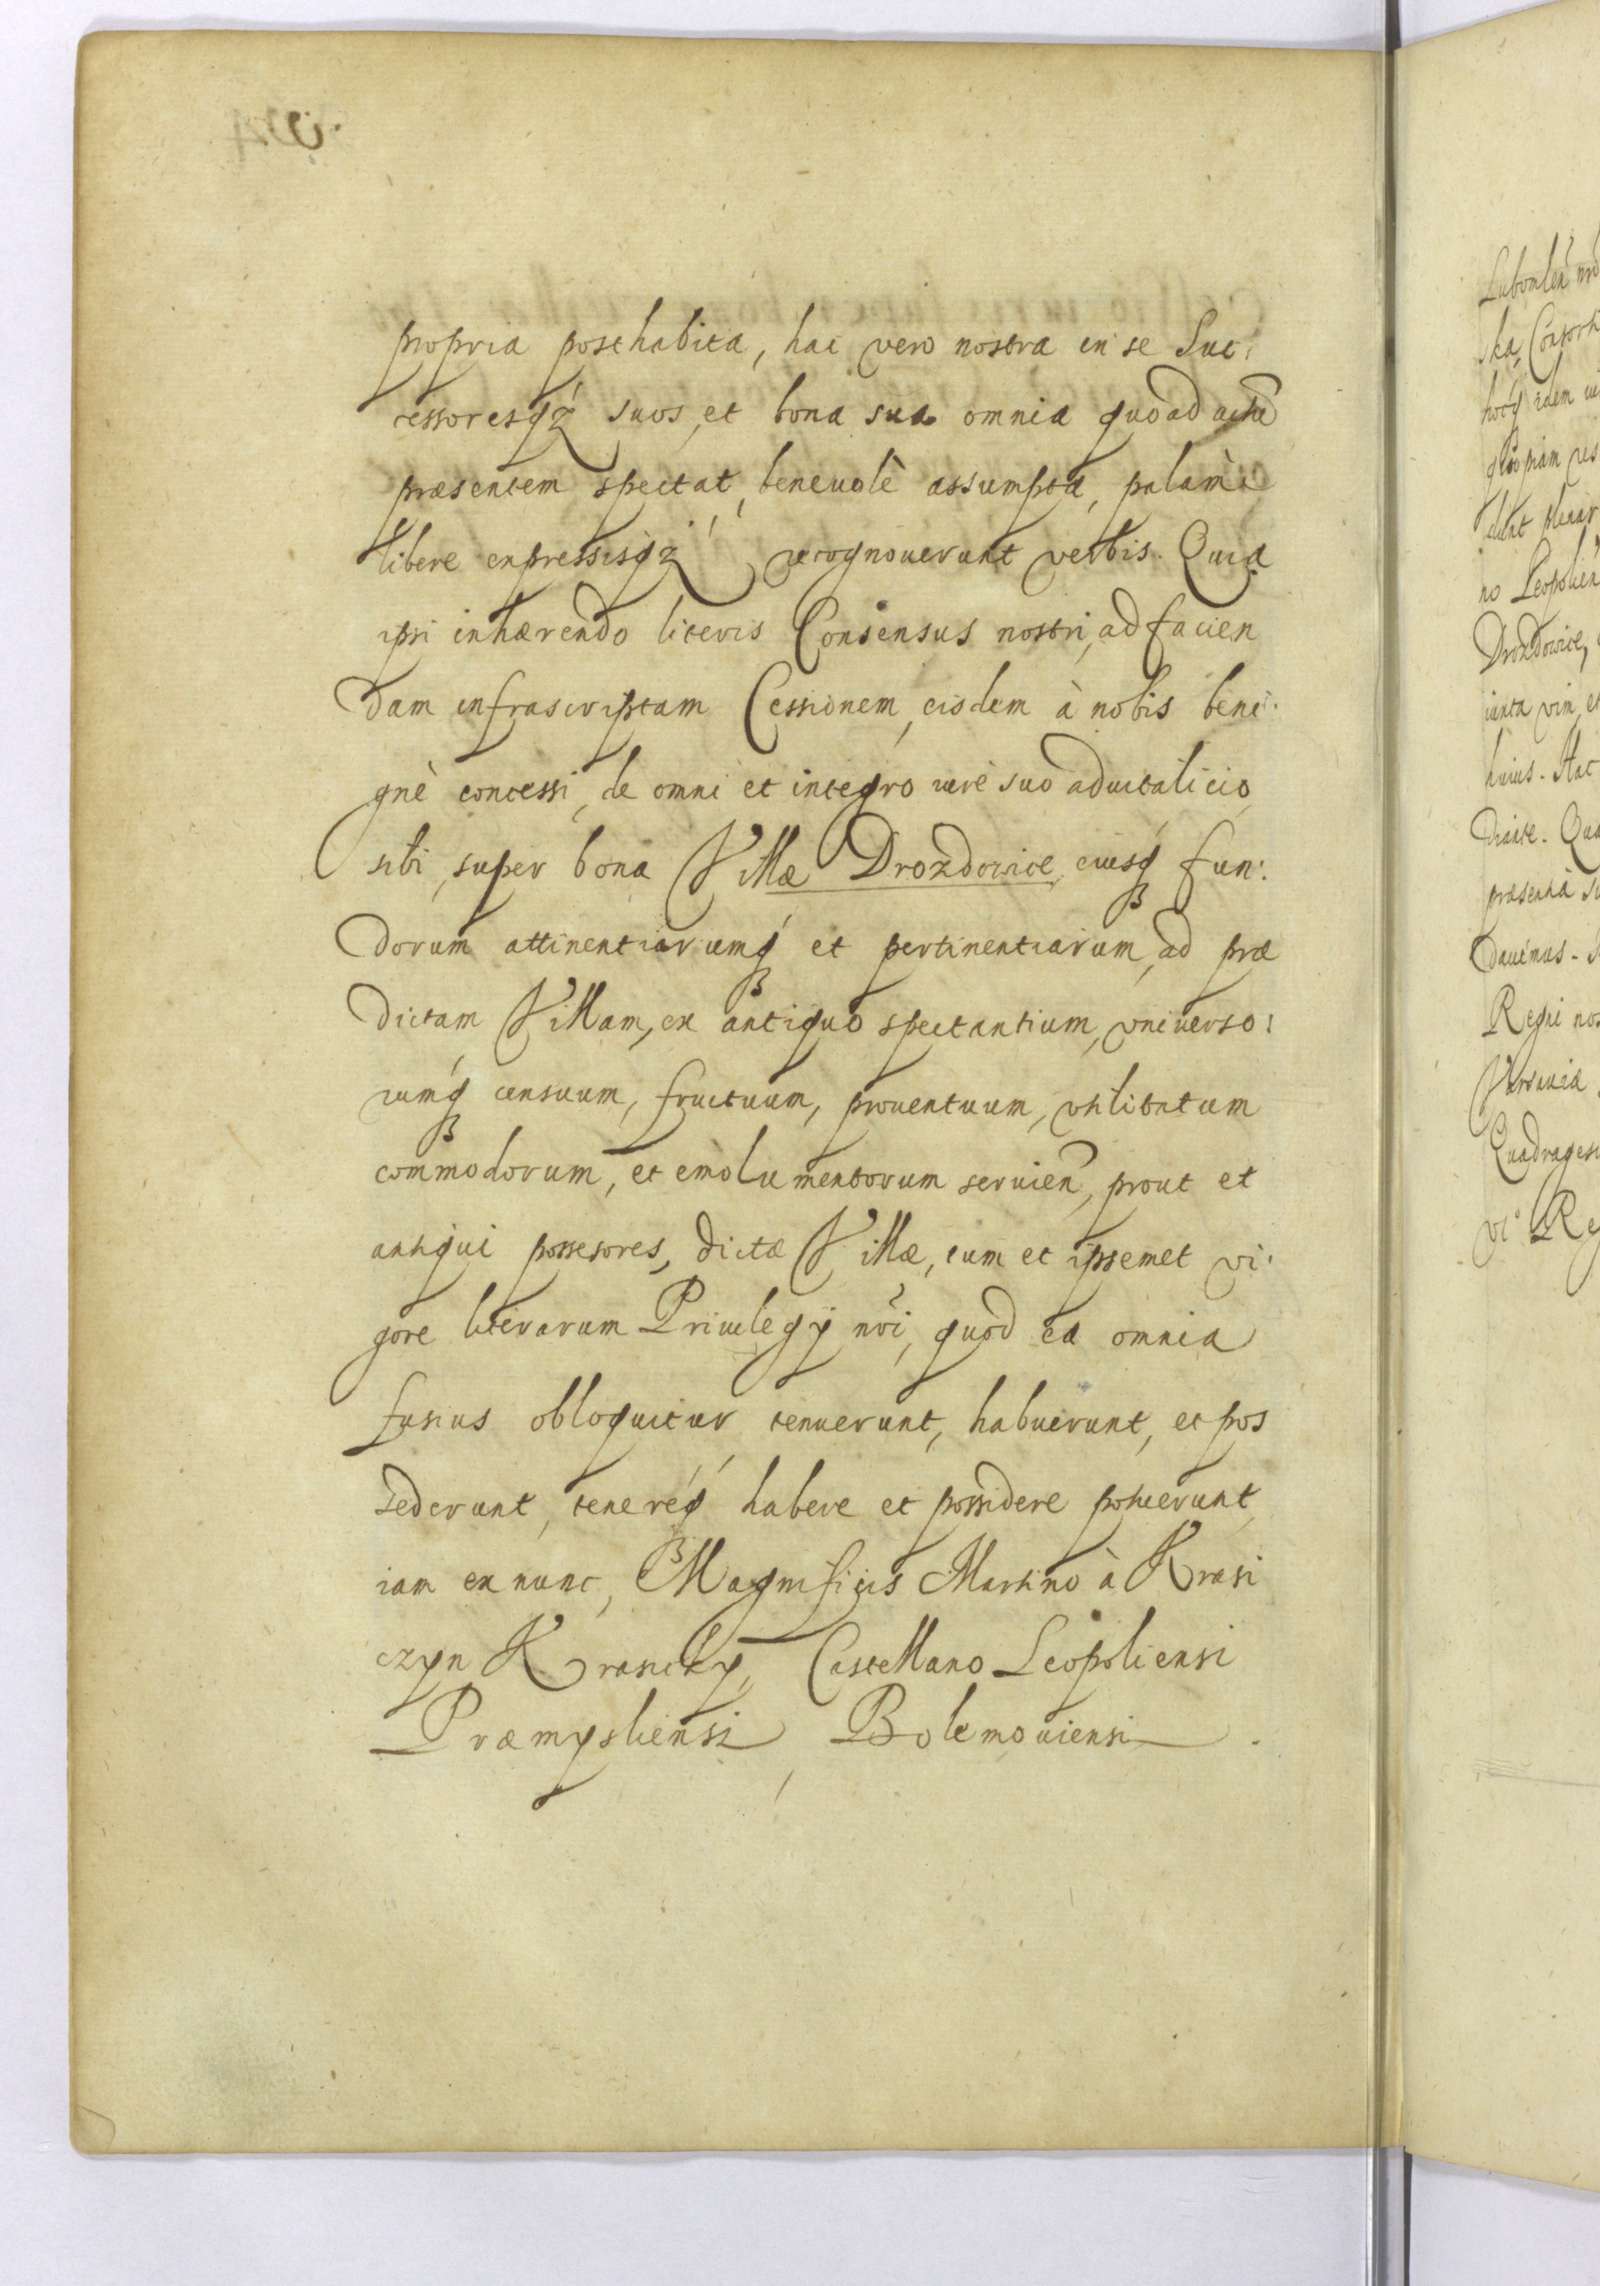 propria posthabita, hac vero nostra in se Suc:
cessoresqz suos, et bona sua omnia quoad actu
præsentem spectat, beneuolè assumpta, palàm
libere expressisqz recognouerunt verbis. Quia
ipsi inhærendo literis Consensus nostri, ad facien
dam infrascriptam Cessionem, eisdem à nobis beni:
gnè concessi, de omni et integro iure suo aduitalicio
sibi, super bona Villæ Drozdowice, eiusq fun:
dorum attinentiarumq et pertinentiarum, ad præ
dictam Villam, ex antiquo spectantium, vniuerso:
rumq censuum, fructuum, prouentuum, vtilitatum
commodorum, et emolumentorum seruien, prout et
antiqui possesores, dictæ Villæ, tum et ipsemet vi:
gore literarum Priuilegÿ nri, quod ea omnia
fusius obloquitur tenuerunt, habuerunt, et pos
sederunt, tenereq habere et possidere potuerunt,
iam ex nunc, Magnificis Martino à Krasi
czyn Krasicky, Castellano Leopoliensi
Præmysliensi, Bolemouiensi

Drozdowice,
huius. Hac
Regni
Varsauiæ